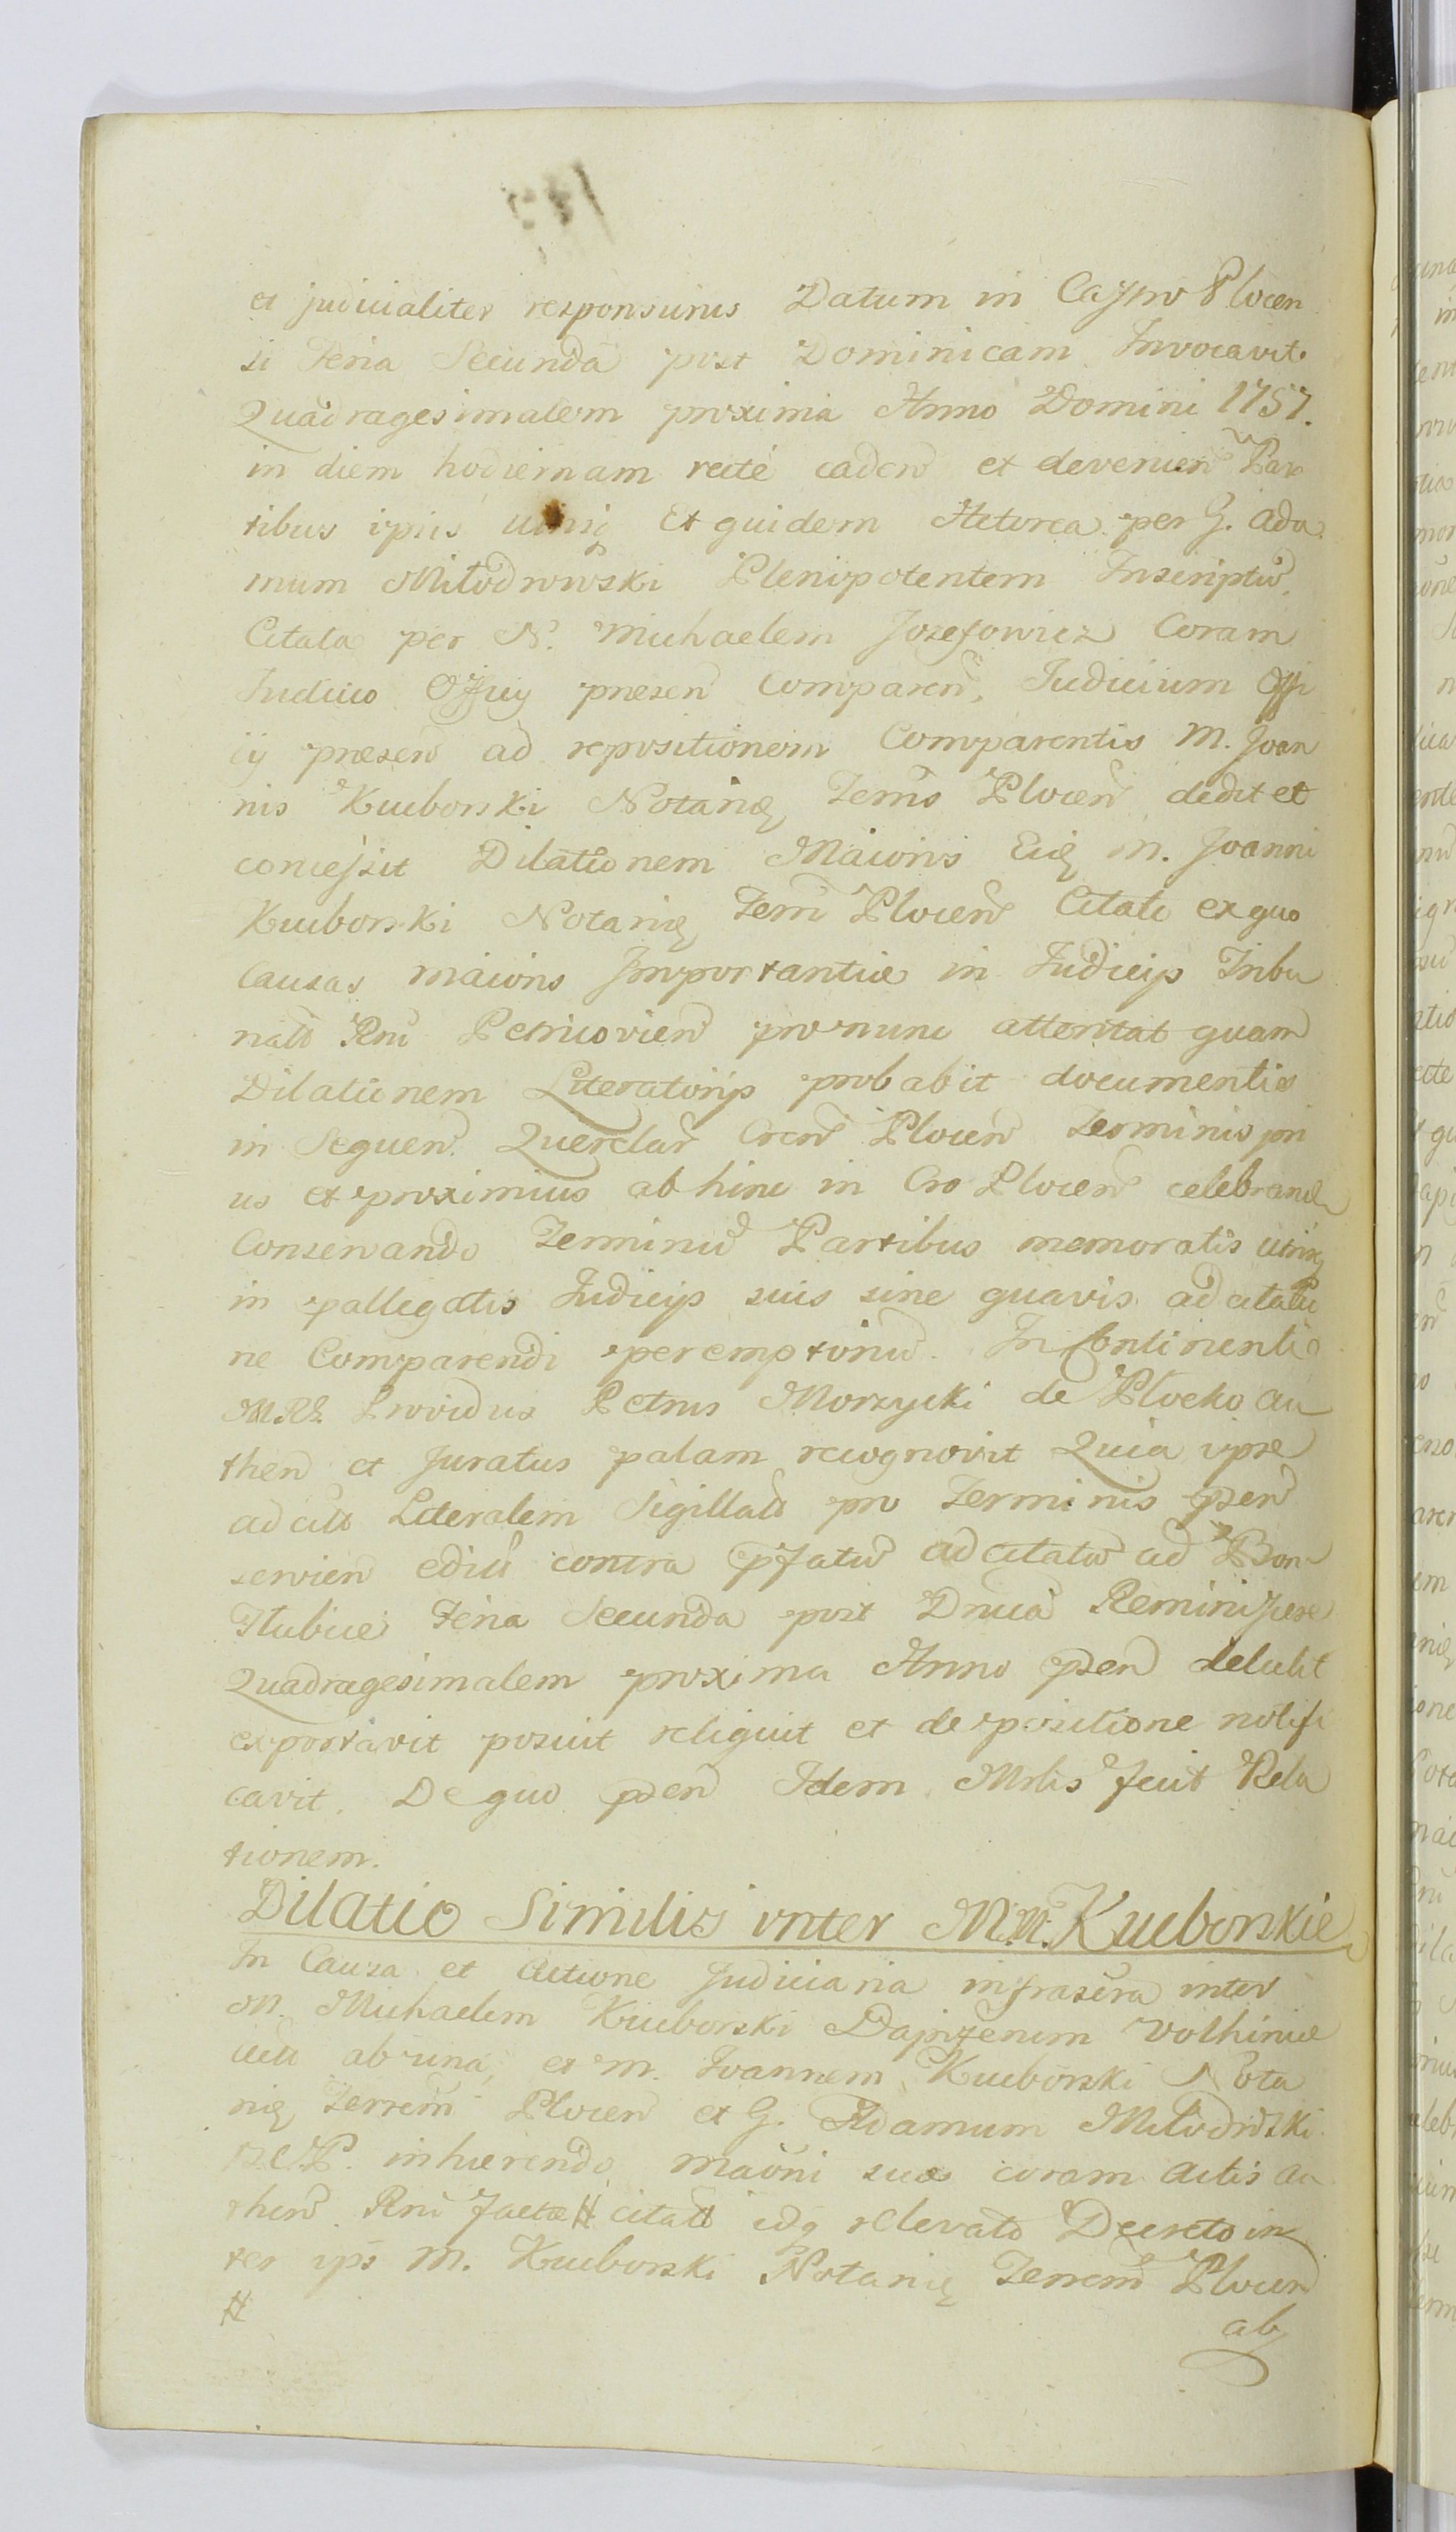 et judicialiter responsurus Datum in Castro Plocen
si Feria Secunda post Dominicam Invocavit
Quadragesimalem proxima Anno Domini 1757.
in diem hodiernam recte caden et devenien Par
tibus ipsis utrinq Et quidem Actorea per G. Ada
mum Miłodrowski Plenipotentem Inscriptu
Citata per N. Michaelem Jozefowicz Coram
Judicio Officij presen Comparen, Judicium Offi
cij presen ad repositionem Comparentis M. Joan
nis Kuciborski Notarię Terris Plocen dedit et
concessit Dilationem Maioris Eię M. Joanni
Kuciborski Notarię Terri Plocen Citato ex quo
Causas maioris Importantiæ in Judicijs Tribu
nalis Rni Petricovien pro nunc attentat quam
Dilationem Literatorijs probabit documentis
in Sequen. Querelar Cren Plocen Terminis pri
us et proximius ab hinc in Cro Plocen celebrand
Conservando Terminu Partibus memoratis utrinq
in pallegatis Judicijs suis sine quavis adcitatio
ne Comparendi peremptoriu. In Continenti
Mrlis Providus Petrus Morzycki de Plocko au
then et Juratus palam recognovit Quia ipse
adcitt Literalem Sigillatt pro Terminis psen
servien editt contra pfatu adcitatu ad Bon
Słubice Feria Secunda post Dnica Reminiscere
Quadragesimalem proxima Anno psen detulit
exportavit posuit reliquit et de positione notifi
cavit. De quo psen Idem Mrlis fecit Rela
tionem.
Dilatio Similis inter M.M. Kuciborskie
In Causa et Actione Judiciaria infrascra inter
M. Michaelem Kuciborski Dapiferum Volhiniæ
ab una, et M. Joannem Kuciborski Nota
rię Terrem Plocen et G. Adamum Miłodrowski
inhærendo maōni suæ coram Actis au
then Rni factæ # citatt idq relevato Decreto in
ter ips M. Kuciborski Notarię Terrem Plocen
#
ab